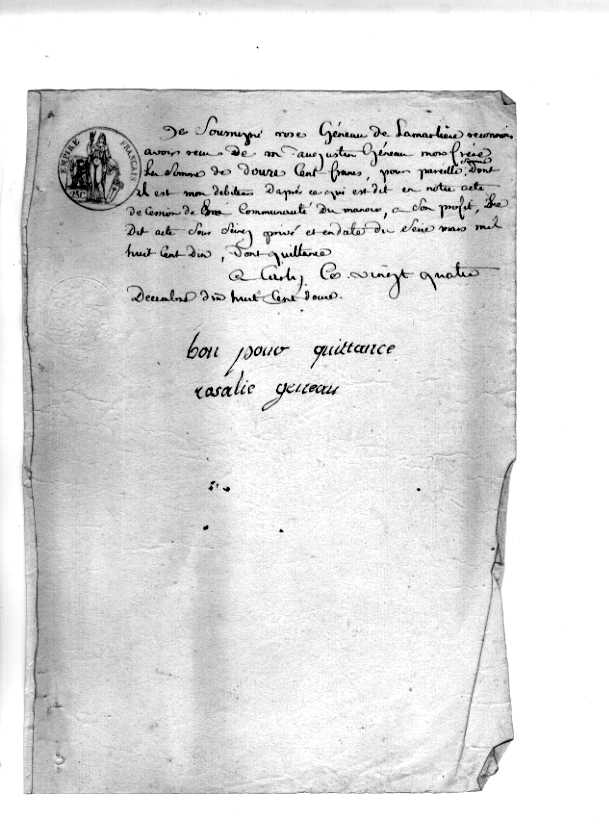 EMPIRE FRANÇAIS
De Soussigné rose Géneau de Lamarlière reconnois
avoir reçu De mr augustin Géneau mon frère
La Somme de douze Cent francs, pour pareille somme Dont
il est mon debiteur D'après ce qui est dit en notre acte
de Cession de Communauté Du manoir, a Son profit,
Dit acte Sous Seing privé et en date du Seize mars mil
huit Cent Dix, Dont quittance
a Ce vingt quatre
Decembre dix huit Cent douze.
bon pour quittance
rosalie geneau